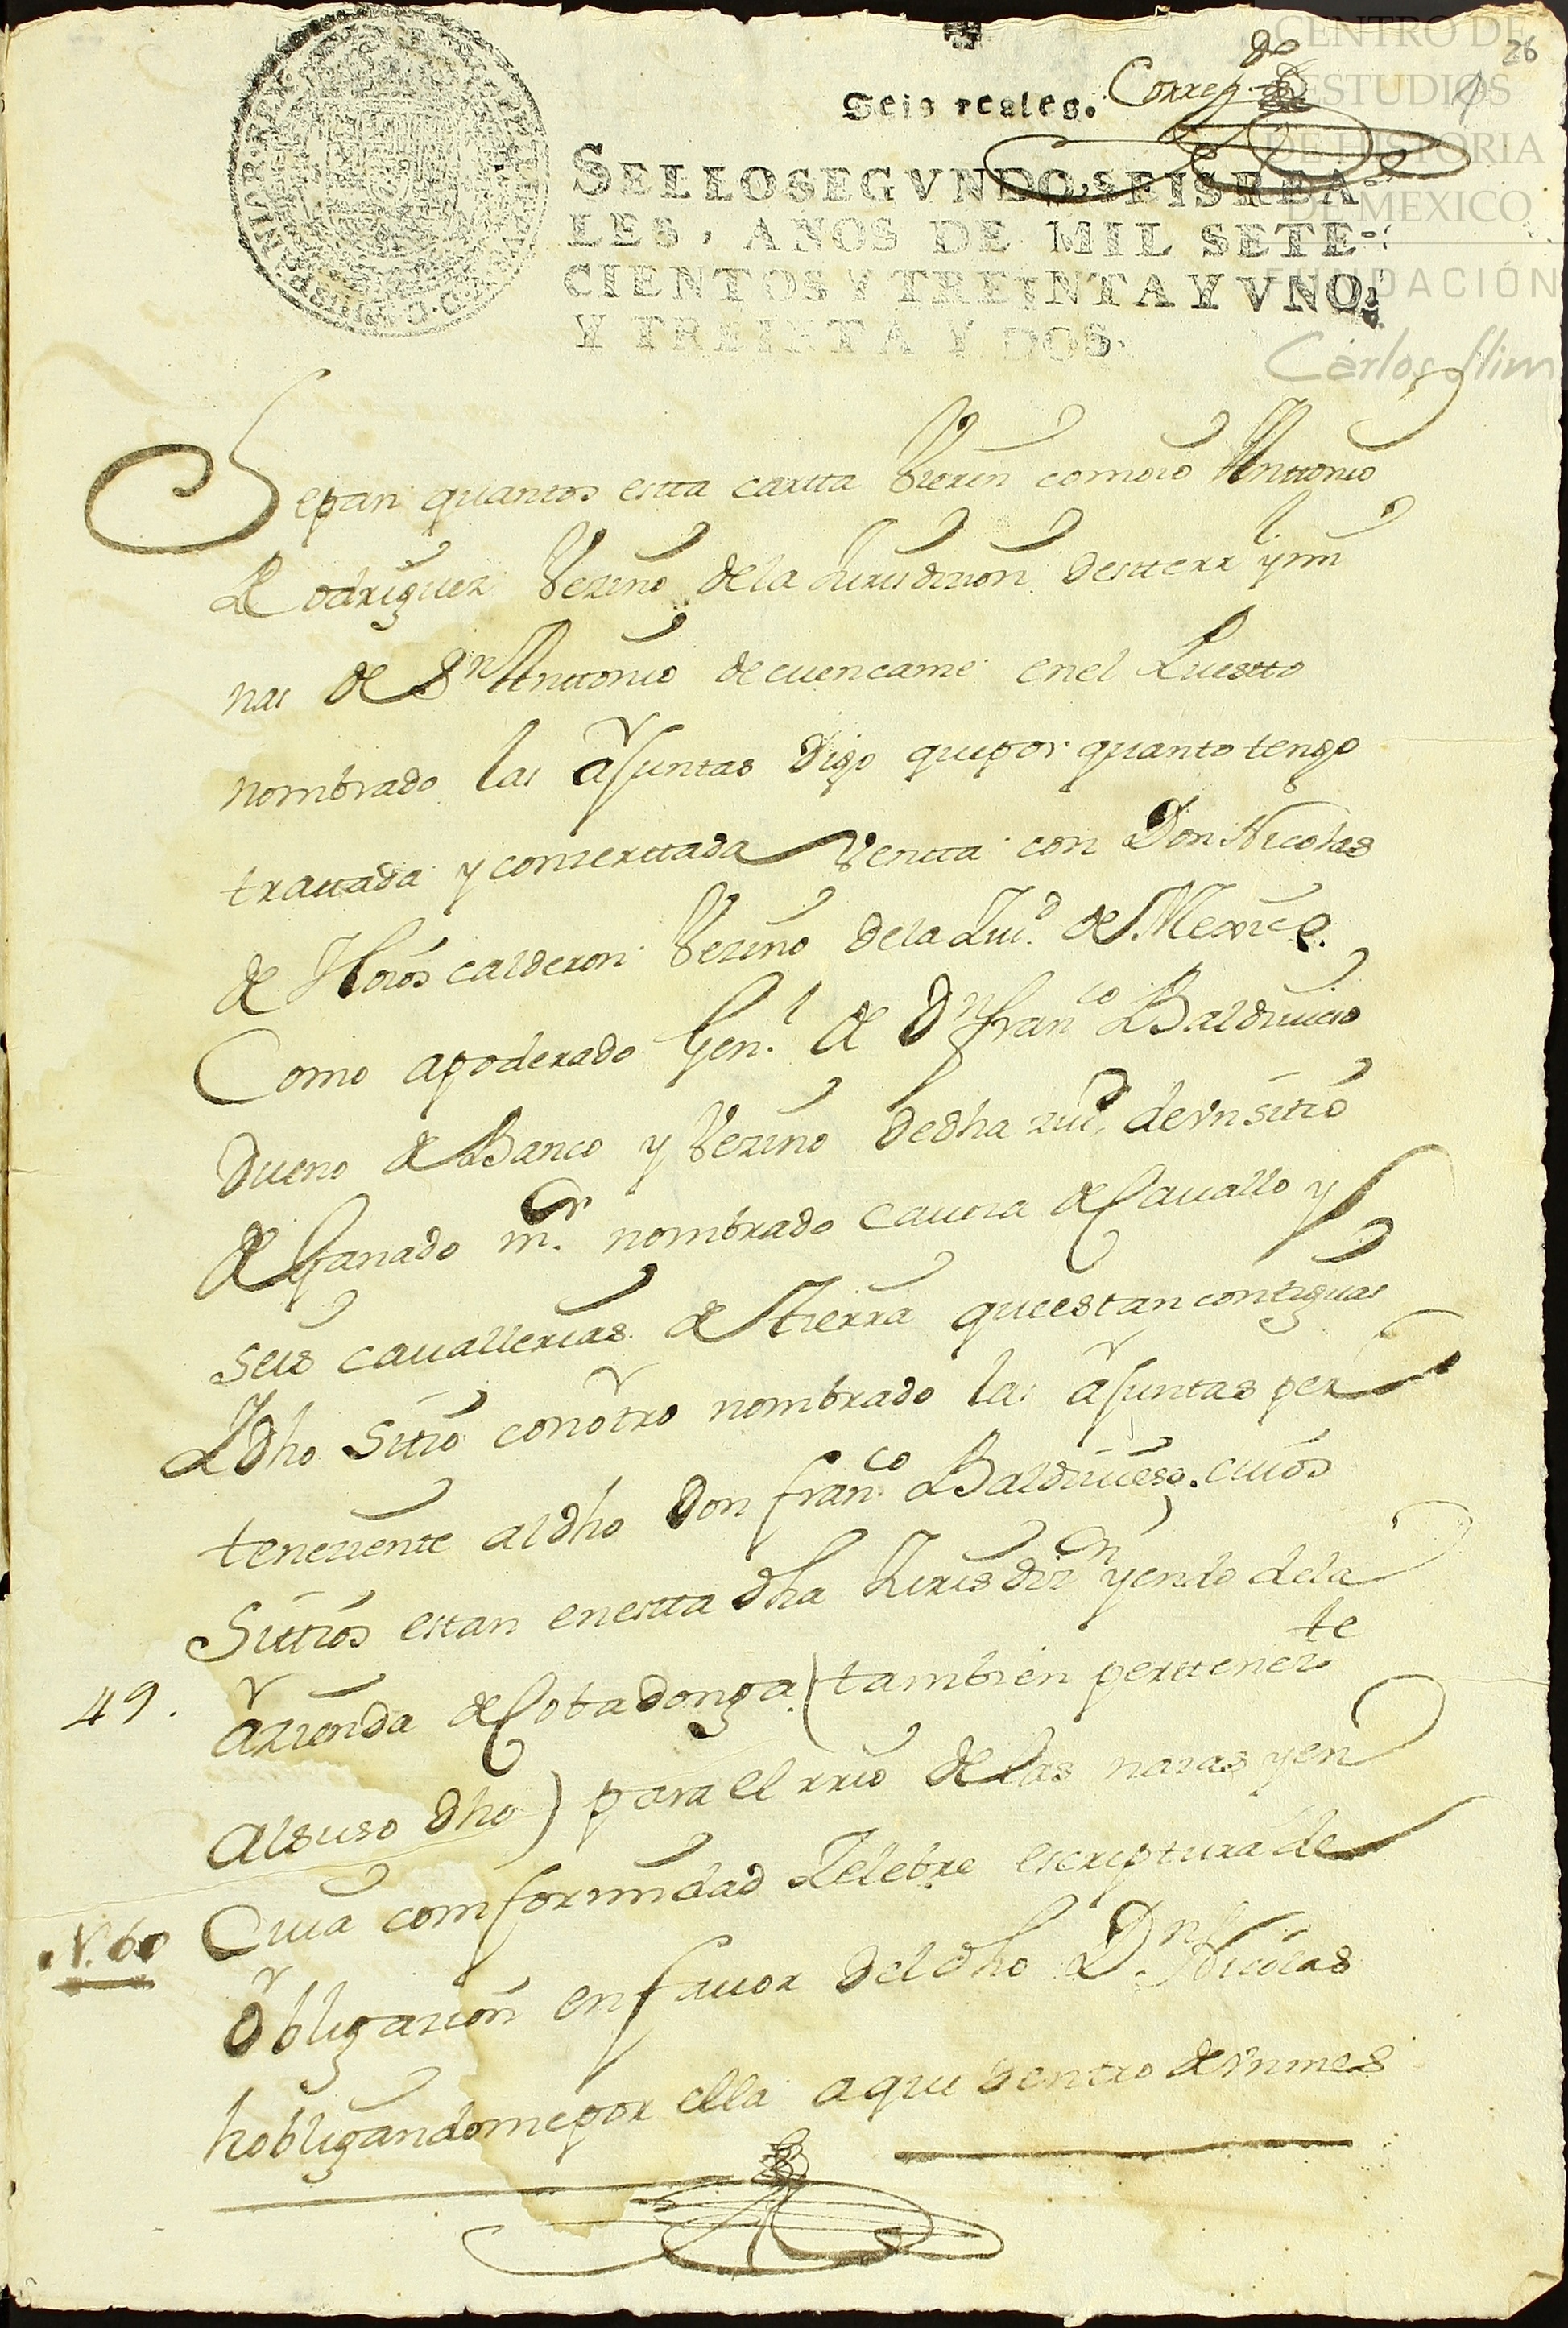 CENTRO DE
ESTUDIOS
DE HISTORIA
DE MEXICO
FUNDACIÓN
Carlos Slim
26
1
Seis reales. Correg.do
SELLO SEGVNDO, SEIS REA-
LES, AÑOS DE MIL SETE-
CIENTOS Y TREINTA Y VNO,
Y TREINTA Y DOS.
Sepan quantos estta cartta Vieren como io Anttonio
Rodriguez Vezino de la Jurisdizion destte rrl y mi
nas de Sn Anttonio de cuencame en el Puestto
nombrado las ajuntas Digo que por quanto tengo
trattada y conzerttada Ventta con Don Nicolas
de Hoios calderon Vezino de la Ziud. de Mexico.
Como apoderado Gen.l de Dn franco Baldiuieio
Dueño de Banco y Vezino de dha ziud. de vn sitio
de Ganado mr. nombrado caueza de Cauallo y
seis cauallerias de Ttierra que estan contiguas
dho Sitio con otro nombrado las ajuntas per
teneziente al dho Don franco Baldiuieso. cuios
Sittios estan en estta dha Jurisdizn yendo de la
49. azienda de Cobadonga (tambien perttenezte
al suso dho) para el rrio de las nasas y en
N. 60 Cuia comformidad Zelebre escriptura de
obligazion en fauor del dho Dn Nicolas
hobligandome por ella a que dentro de vn mes